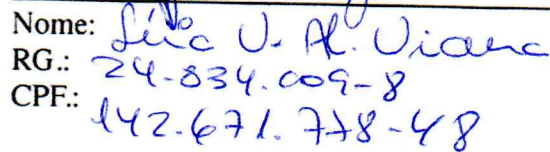 Nome: Lúcia V. Al. Viana
RG.: 24-834.009-8
CPF.: 142.671.778-48